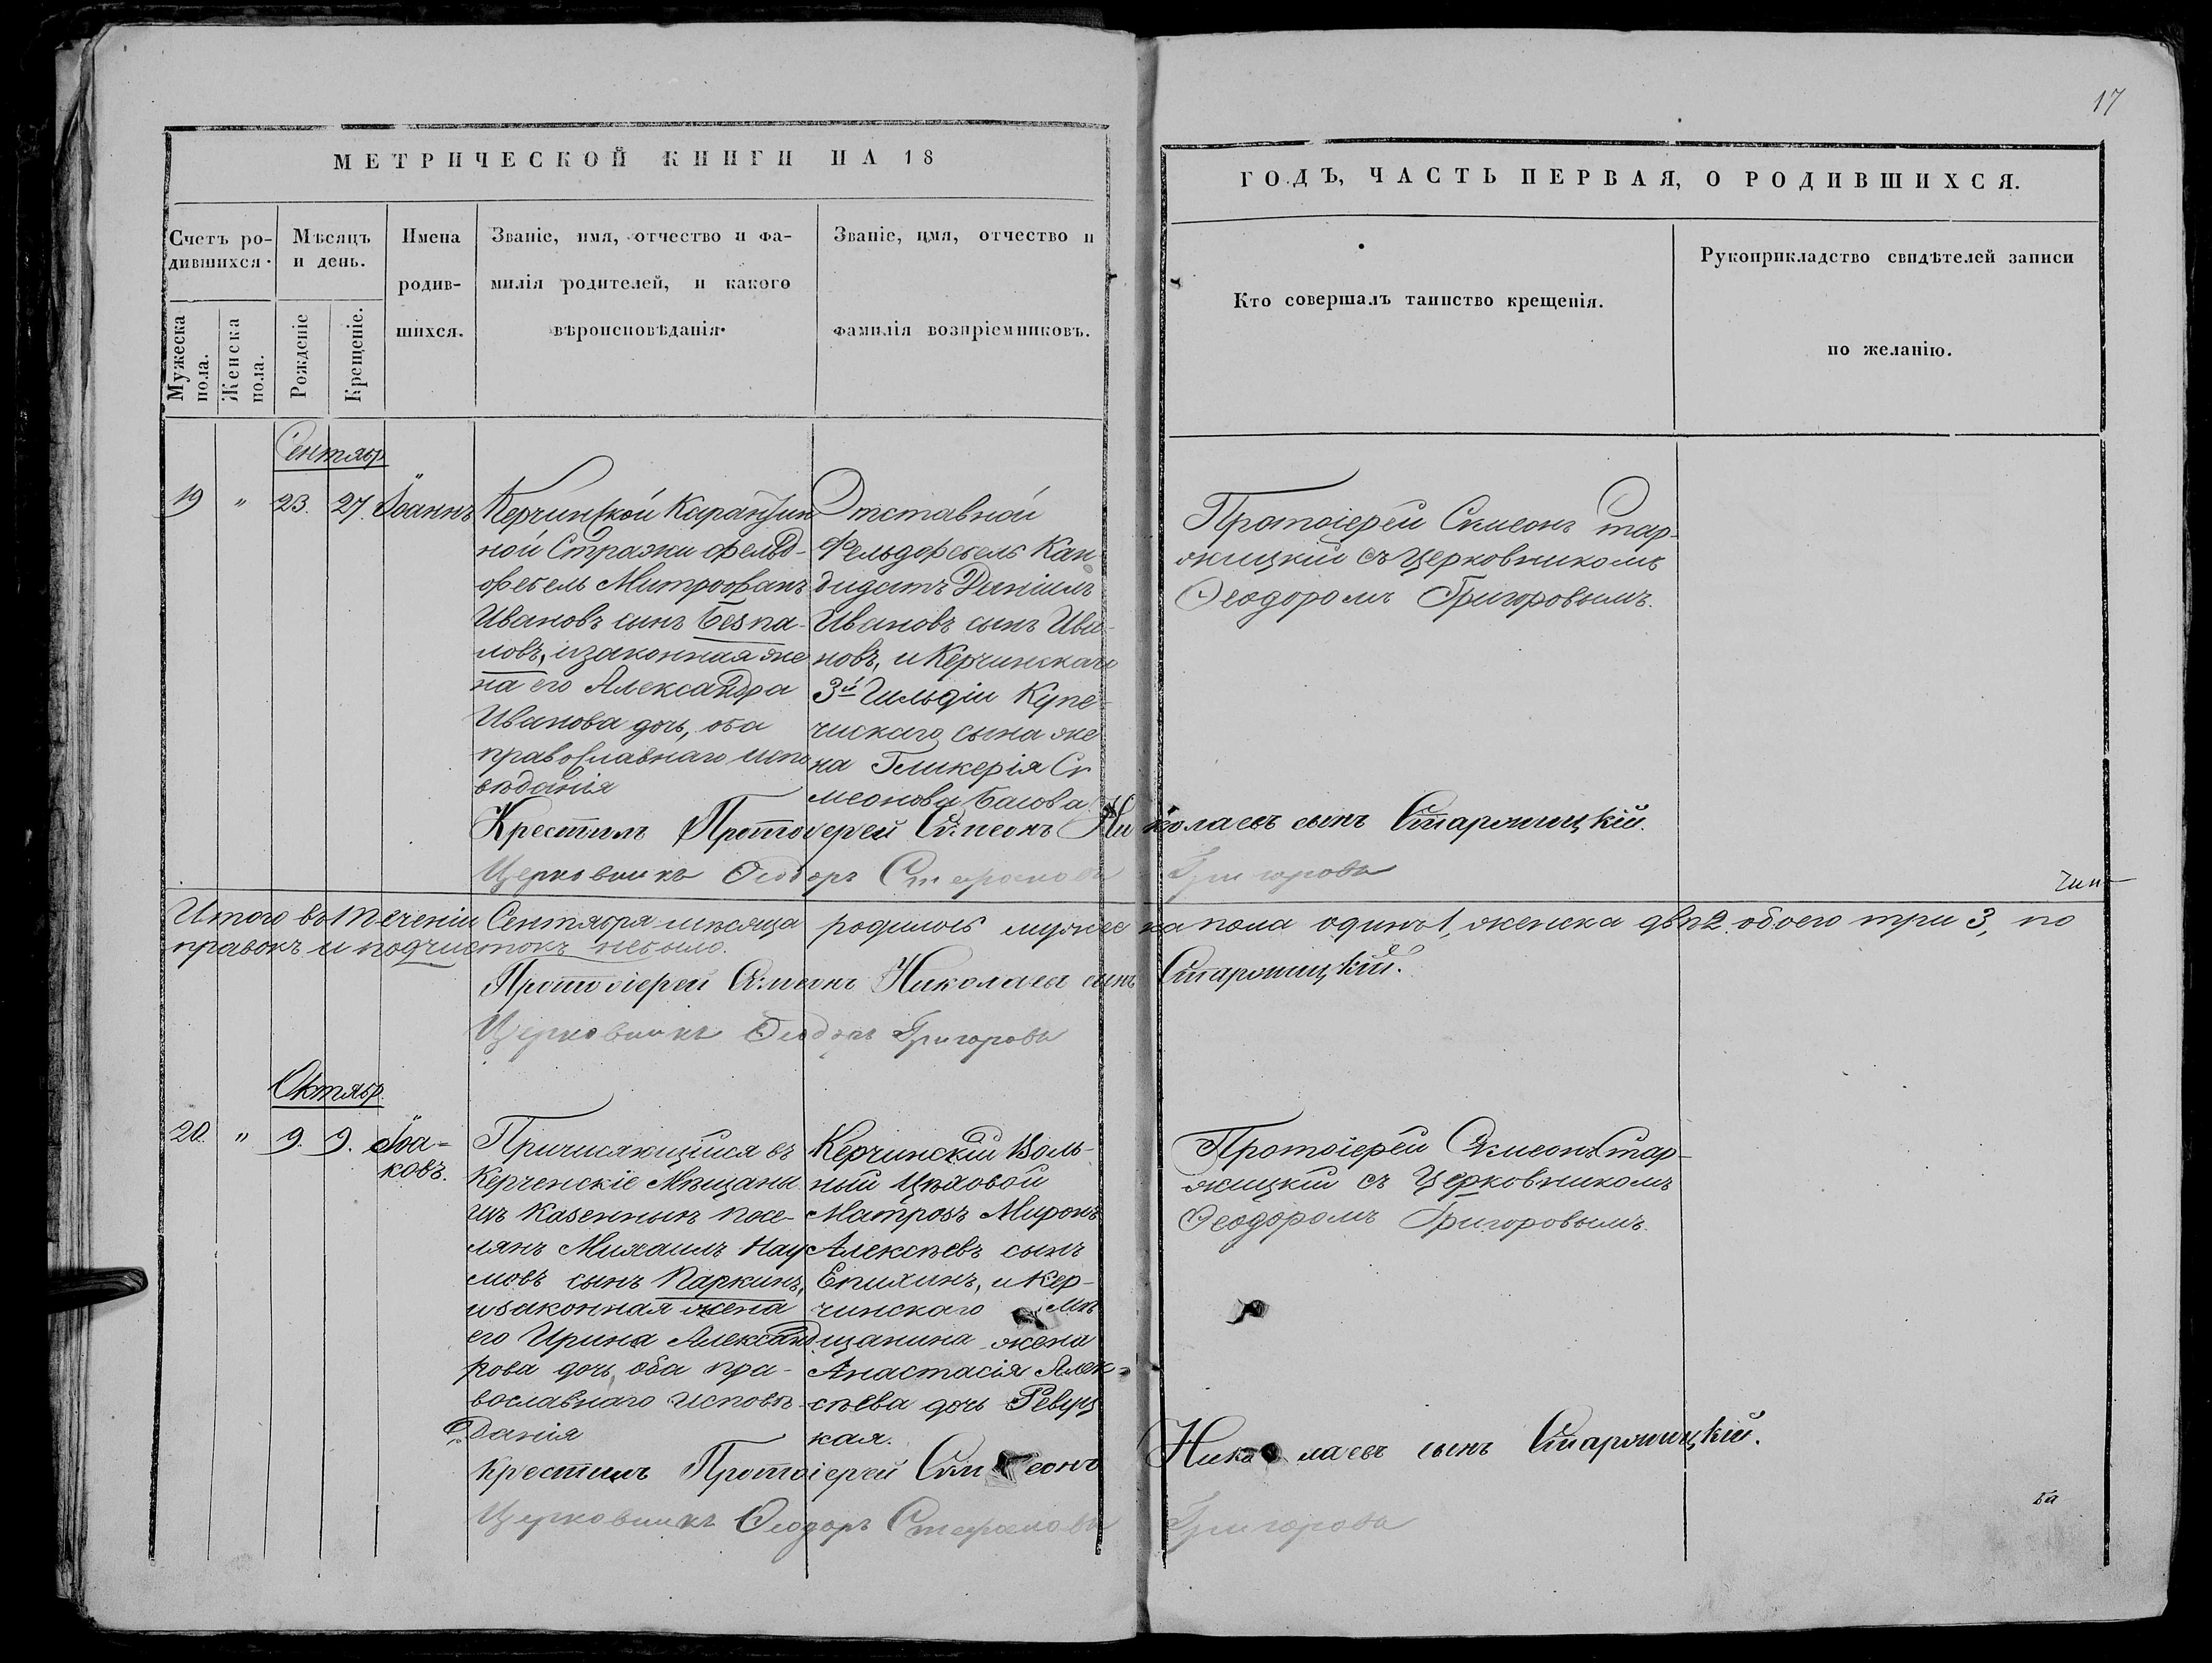 17
МЕТРИЧЕСКОЙ КНИГИ НА 18
ГОДЪ, ЧАСТЬ ПЕРВАЯ, О РОДИВШИХСЯ.
Счетъ ро-
дившихся.
Мужеска
пола.
Женска
пола.
Мѣсяцъ
и день.
Рожденіе
Крещеніе.
Имена
родив-
шихся.
Званіе, имя, отчество и фа-
милія родителей, и какого
вѣроисповѣданія.
Званіе, имя, отчество и
фамилія воспріемниковъ.
Кто совершалъ таинство крещенія.
Рукоприкладство свидѣтелей записи
по желанію.
Сентябр
19 " 23. 27. Іоаннъ
Керчинской Карантин
ной Стражи фельд-
фебель Митрофанъ
Ивановъ сынъ Безпа-
ловъ, и законная же
на его Александра
Иванова дочь, оба
православнаго испо
вѣданія
Отставной
Фельдфебель Кан
дидатъ Даніилъ
Ивановъ сынъ Ива-
новъ, и Керчинскаго
3й Гильдіи Купе-
ческаго сына же
на Гликерія Си
меонова Басова
Протоіерей Симеонъ Стар-
жицкій съ Церковникомъ
Ѳеодоромъ Григоровымъ.
Крестилъ Протоіерей Симеонъ Николаевъ сынъ Старжицкій.
Церковникъ Ѳеодоръ Стефановъ Григоровъ
Итого въ теченіи Сентября мѣсяца родилось мужеска пола одинъ 1, женска двѣ 2. обоего три 3, по
правокъ и подчистокъ небыло.
Протоіерей Симеонъ Николаевъ сынъ Старжицкій.
Церковникъ Ѳеодоръ Григоровъ
Октябр.
20. " 9. 9. Іоа-
ковъ.
Причисляющійся въ
Керченскіе Мѣщаны
изъ Казенныхъ посе-
лянъ Михаилъ Нау
мовъ сынъ Паркинъ,
и законная жена
его Ирина Александ
рова дочь, оба пра-
вославнаго исповѣ-
данія
Керчинскій Воль-
ный Цѣховой
Матрозъ Миронъ
Алексѣевъ сынъ
Епихинъ, и Кер-
чинскаго мѣ
щанина жена
Анастасія Алек-
сѣева дочь Ревуц
кая.
Протоіерей Симеонъ Стар-
жицкій съ Церковникомъ
Ѳеодоромъ Григоровымъ.
Крестилъ Протоіерей Симеонъ Николаевъ сынъ Старжицкій.
Церковникъ Ѳеодоръ Стефановъ Григоровъ